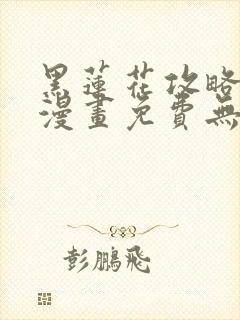 黑蓮花攻略
漫畫免費無
彭鵬飛